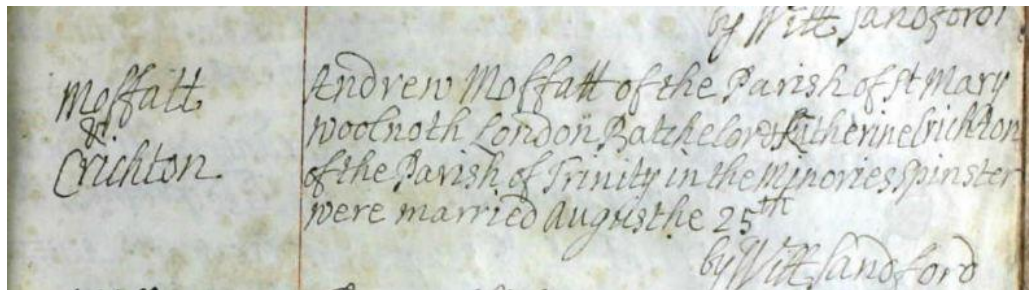 by Will Sandford
Moffatt
&
Crichton
Andrew Moffatt of the Parish of St Mary
woolnoth London Batchelor & Katherine Crichton
of the Parish of Trinity in the Minories Spinster
were married Augusthe 25th
by Will Sandford